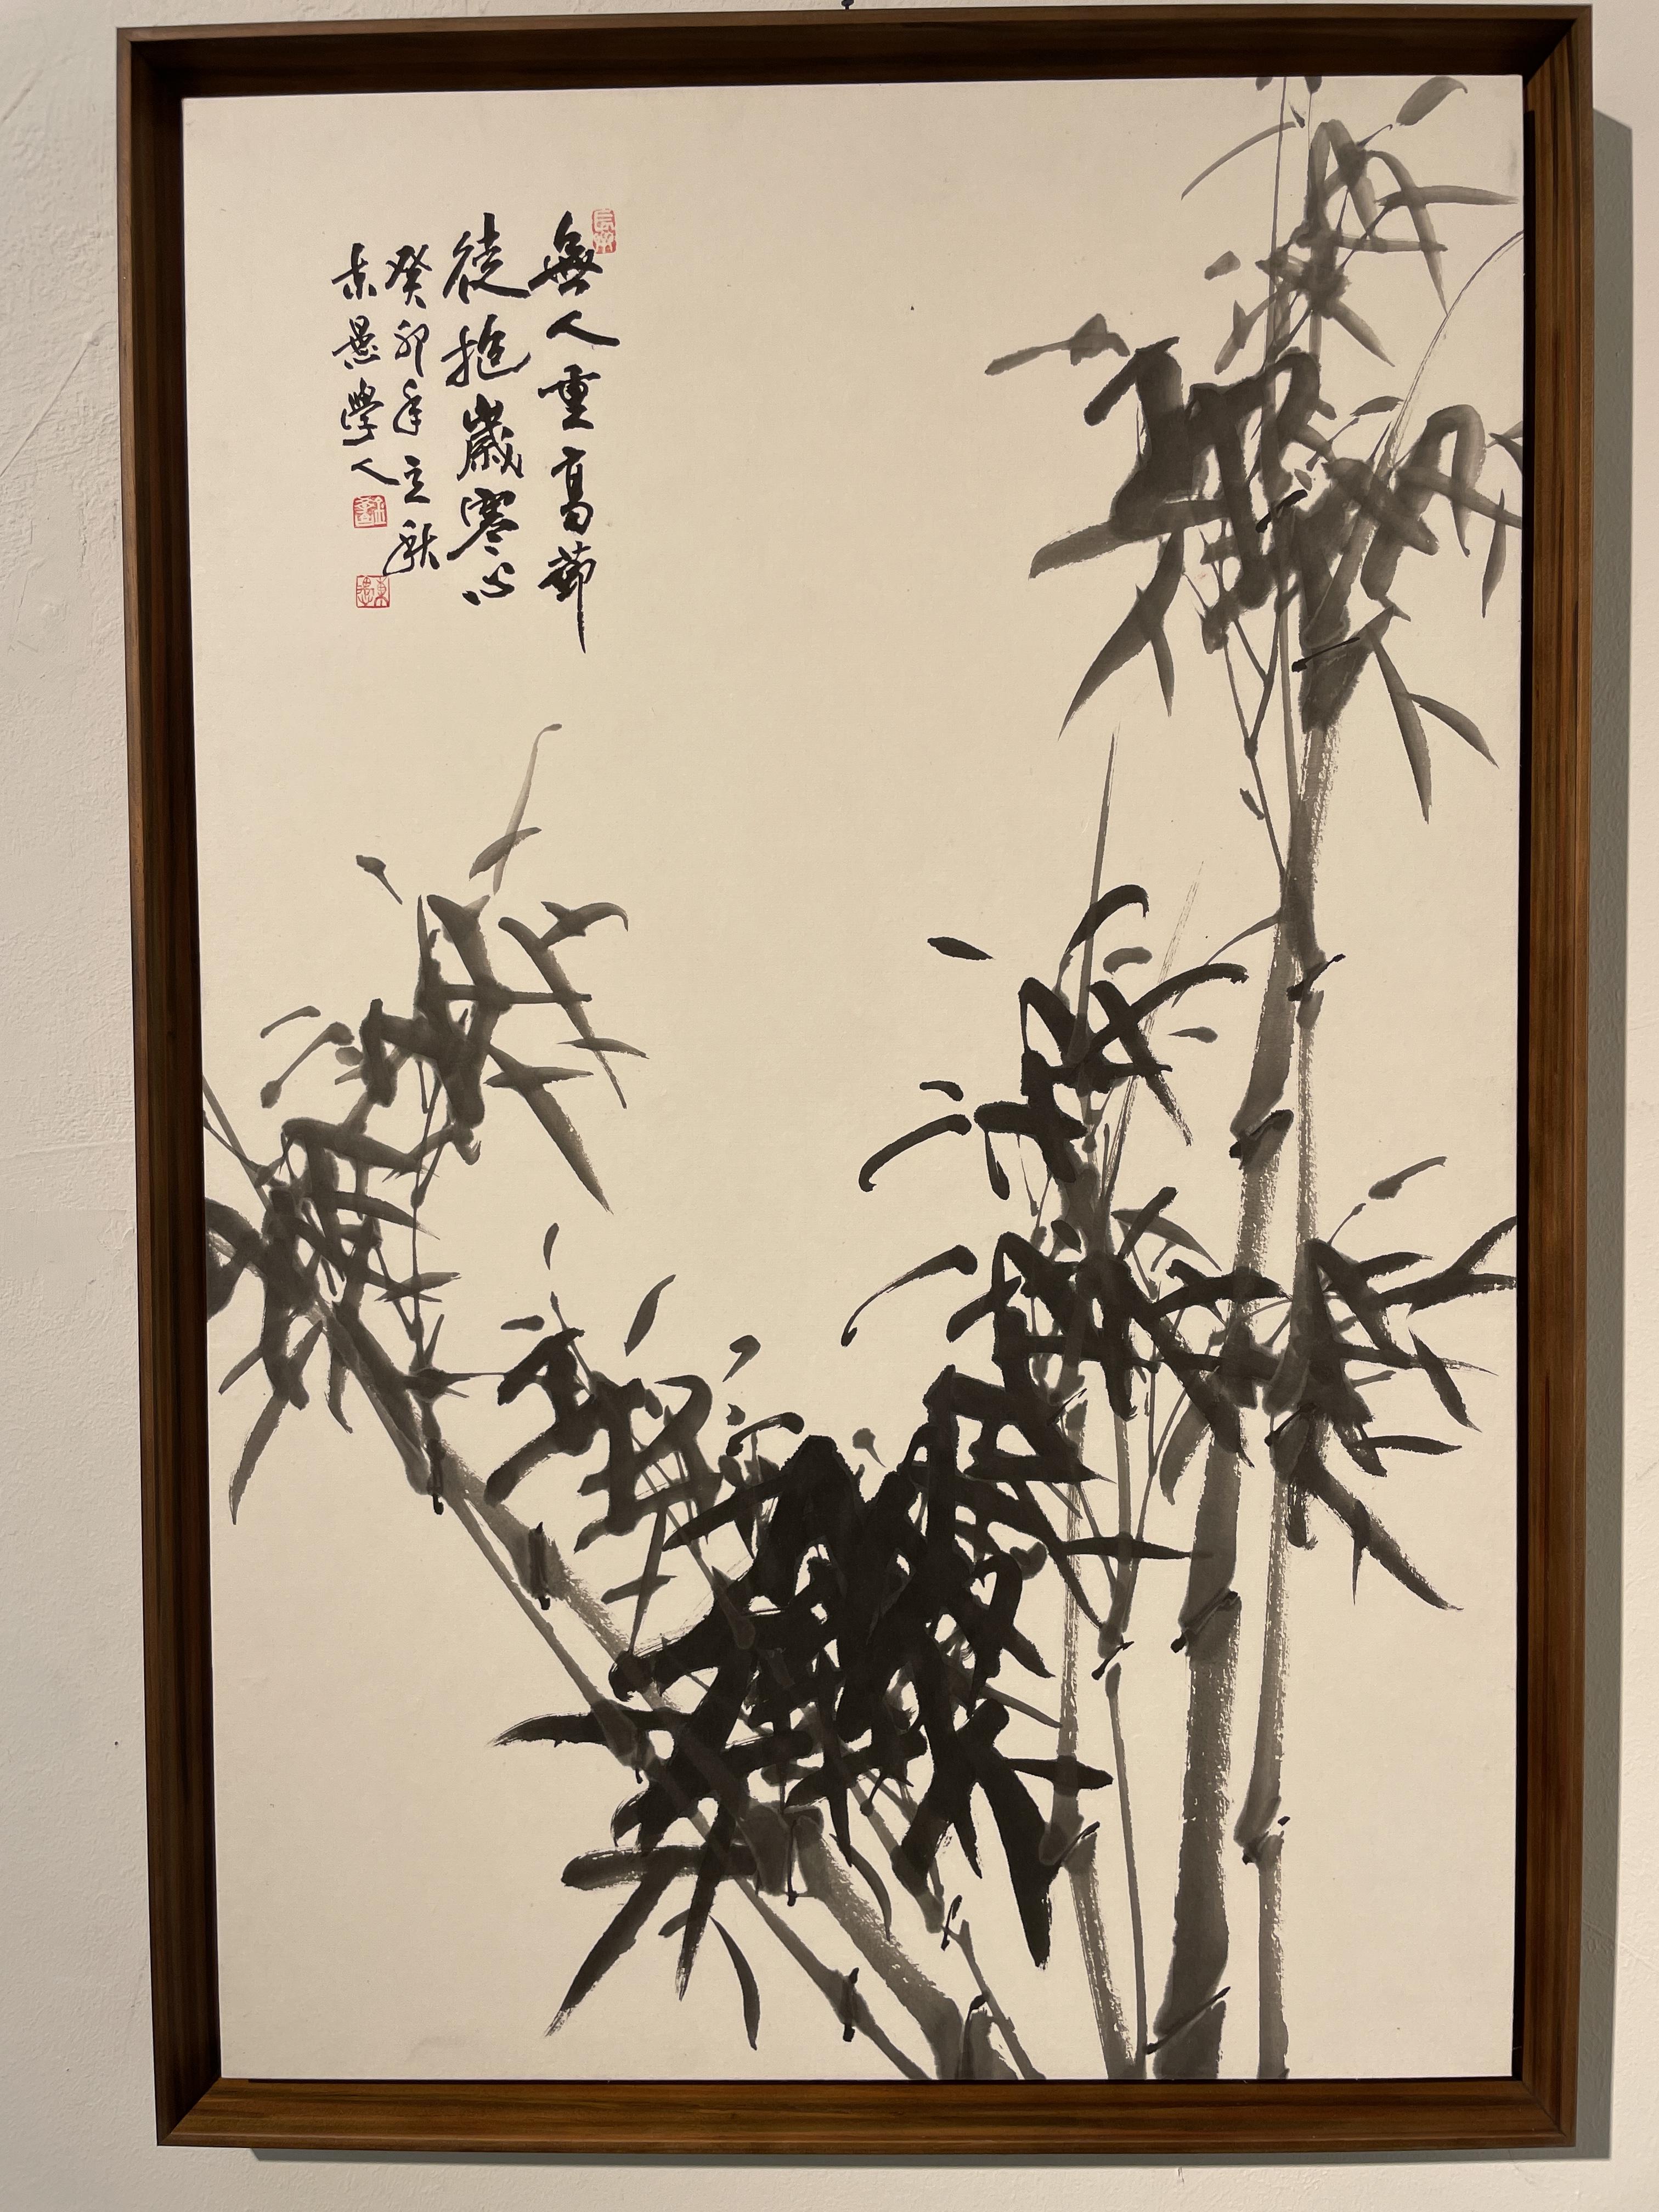 無人重高節
徒抱歲寒心
癸卯年立秋
東墨學人